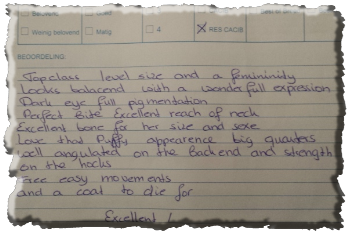 Weinig belovend
Matig
4
X RES CACIB
BEOORDELING:
Topclass level size and a femininity
Looks balacend with a wonderfull expression
Dark eye full pigmentation
Perfect Bite Excellent reach of neck
Excellent bone for her size and sexe
Love that Puffy appearence big quarters
well angulated on the backend and strength
on the hocks
Free easy movements
and a coat to die for
Excellent 1